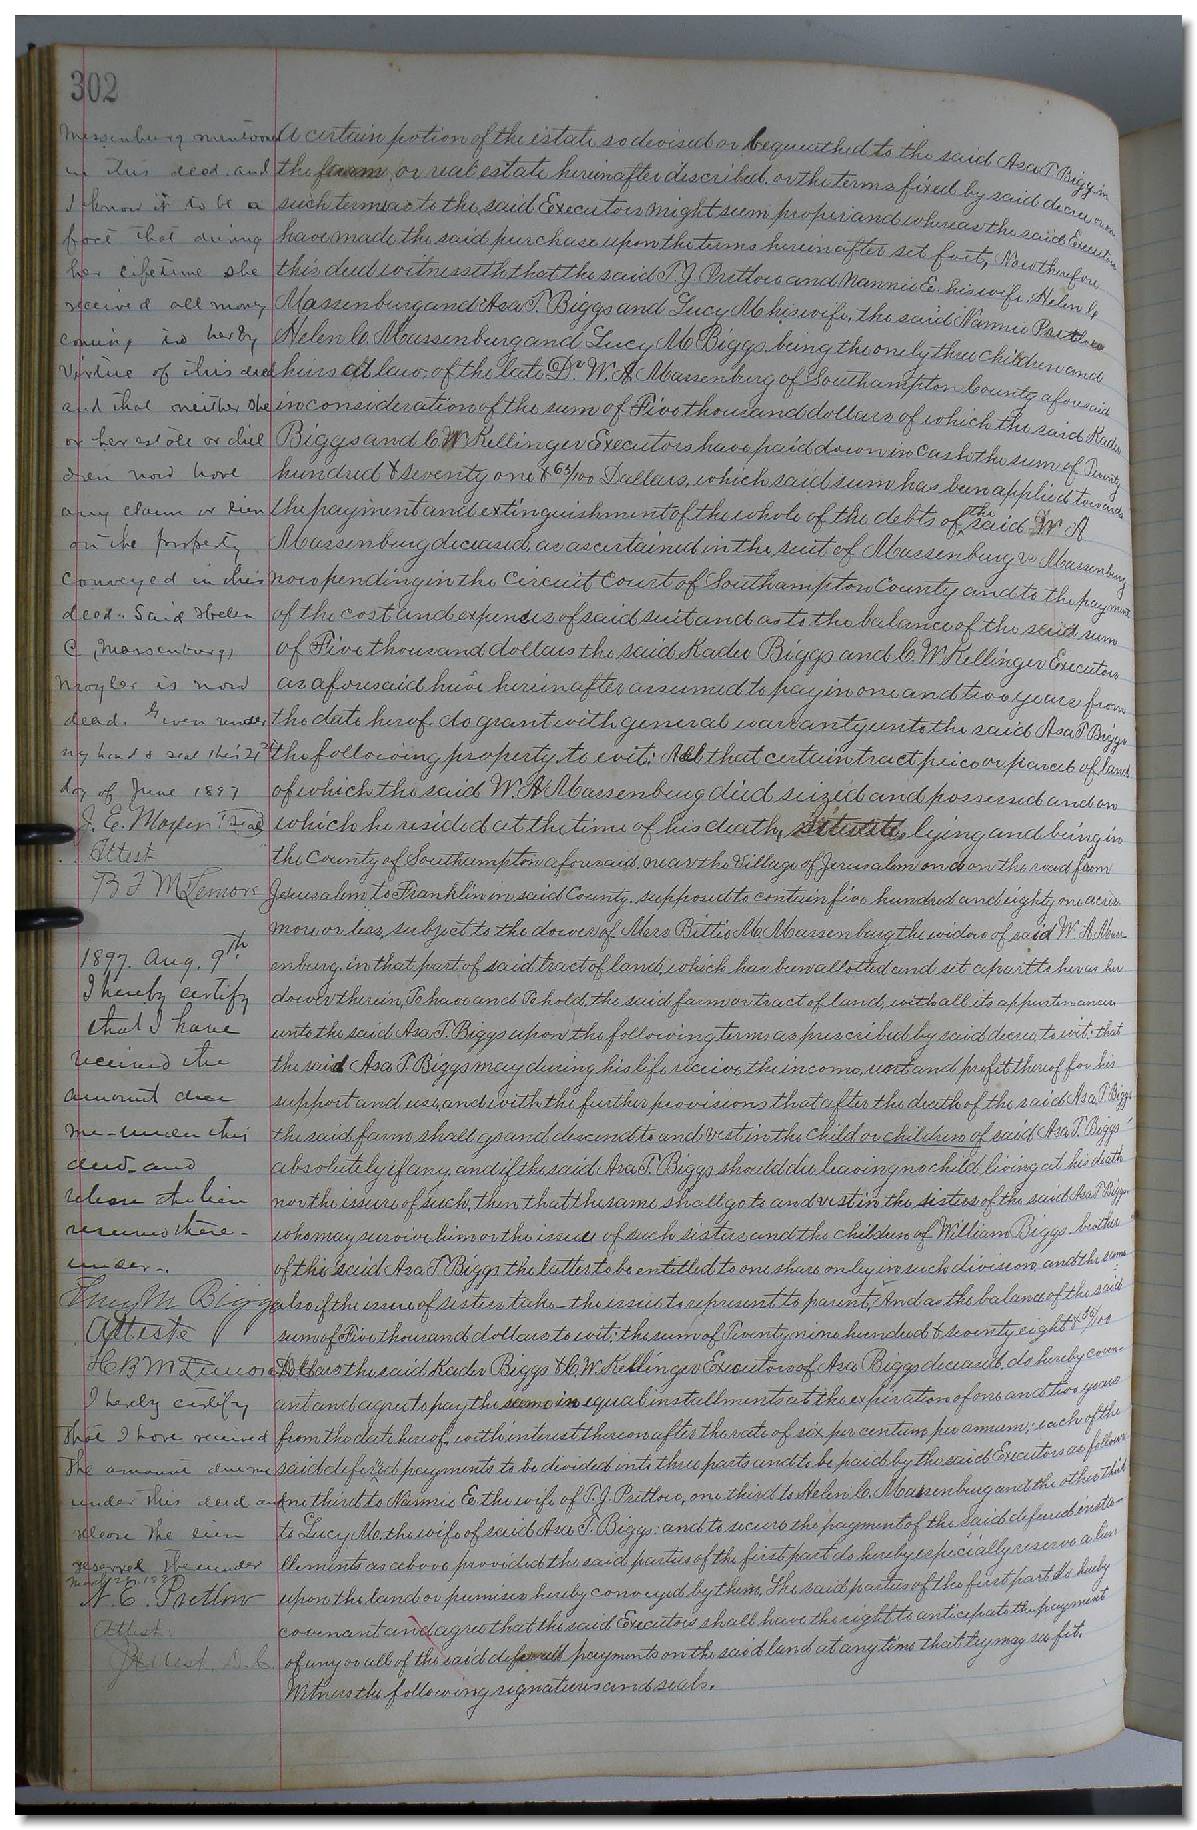 302
a certain potion of the estate so devised or bequeathed to the said Asa T. Biggs in
the farm, or real estate hereinafter described, or the terms fixed by said decree or on
such terms as to the, said Executors might seem proper and whereas the said Executors
have made the said purchase upon the terms herein after set fort, Now therefore
this deed witnesseth that the said T. J. Pretlow and Nannie E. his wife, Helen C.
Massenburg and Asa T. Biggs and Lucy M his wife, the said Nannie Pretlow
Helen C. Massenburg and Lucy M Biggs being the onely three children and
heirs at law, of the late Dr W. A. Massenburg of Southampton County aforesaid
in consideration of the sum of Five thousand dollars of which the said Kader
Biggs and C W Kellinger Executors have paid down in cash the sum of Twenty
hundred & seventy one & 63/100 Dollars, which said sum has been applied towards
the payment and extinguishment of the whole of the debts of the said W A
Massenburg deceased, as ascertained in the suit of Massenburg vs Massenburg
now pending in the Circuit Court of Southampton County and to the payment
of the cost and expenses of said suit and as to the balance of the said sum
of Five thousand dollars the said Kader Biggs and C. W Kellinger Executors
as aforesaid have hereinafter assumed to pay in one and two years from
the date herof do grant with general warranty unto the said Asa T Biggs
the following property to wit: All that certain tract peice or parcel of land
of which the said W. A Massenburg died seized and possessed and on
which he resided at the time of his death, situate, lying and being in
the County of Southampton aforesaid near the Village of Jerusalem and on the road from
Jerusalem to Franklin in said County, supposed to contain five hundred and eighty one acres
more or less, subject to the dower of Mrs Bittie M. Massenburg the widow of said W. A Mass-
enburg, in that part of said tract of land, which has been allotted and set apart to her as her
dower therein, To have and To hold, the said farm or tract of land, with all its appurtenances
unto the said Asa T. Biggs upon the following terms as prescribed by said decree, to wit: that
the said Asa T. Biggs may during his life receive the income, rent and profit thereof for his
support and use, and with the further provisions that after the death of the said Asa T Biggs
the said farm shall go and descend to and vest in the child or children of said Asa T. Biggs'
absolutely if any, and if the said Asa T. Biggs should die leaving no child living at his death
nor the issue of such, then that the same shall go to and vest in the sisters of the said Asa T Biggs
who may survive him or the issue of such sisters and the children of William Biggs brother
of the said Asa T Biggs the latter to be entitled to one share only in such division, and the same
also if the issue of sisters take the issue to represent to parent, And as the balance of the said
sum of Five thousand dollars, to wit: the sum of Twenty nine hundred & seventy eight & 36/100
Dollars the said Kader Biggs & C. W. Kellinger Executors of Asa Biggs deceased, do hereby coven-
ant and agree to pay the same in equal installments at the expiration of one and two years
from the date hereof, with interest thereon after the rate of six per centum per annum; each of the
said deferred payments to be divided into three parts and to be paid by the said Executors as follows
one third to Nannie E. the wife of T. J. Pretlow, one third to Helen C. Massenburg and the other third
to Lucy M. the wife of said Asa T. Biggs: and to secure the payment of the said deferred insta-
llements as above provided the said parties of the first part do hereby especially reserve a lien
upon the land or premises hereby conveyed by them. The said parties of the first part do hereby
covenant and agree that the said Executors shall have the right to anticipate the payment
of any or all of the said deferred payments on the said land at any time that they may see fit.
Witness the following signatures and seals.
Massenburg mentioned
in this deed. and
I know it to be a
fact that during
her lifetime she
received all money
coming to her by
virtue of this deed
and that neither she
or her estate or chil
dren now have
any claim or lien
on the property
conveyed in this
deed. Said Helen
C (Massenburg)
Moyler is now
dead. Given under
my hand & seal this 21st
day of June 1897
J. E. Moyler [Seal]
Attest
B F McLemore
1897. Aug. 9th.
I hereby certify
that I have
received the
amount due
me under this
deed and
release the lien
reserved there-
under.
Lucy M Biggs
Atteste
H B McLemore
I hereby certify
that I have received
the amount due me
under this deed and
release the lien
reserved thereunder
N. E. Pretlow
Attest.